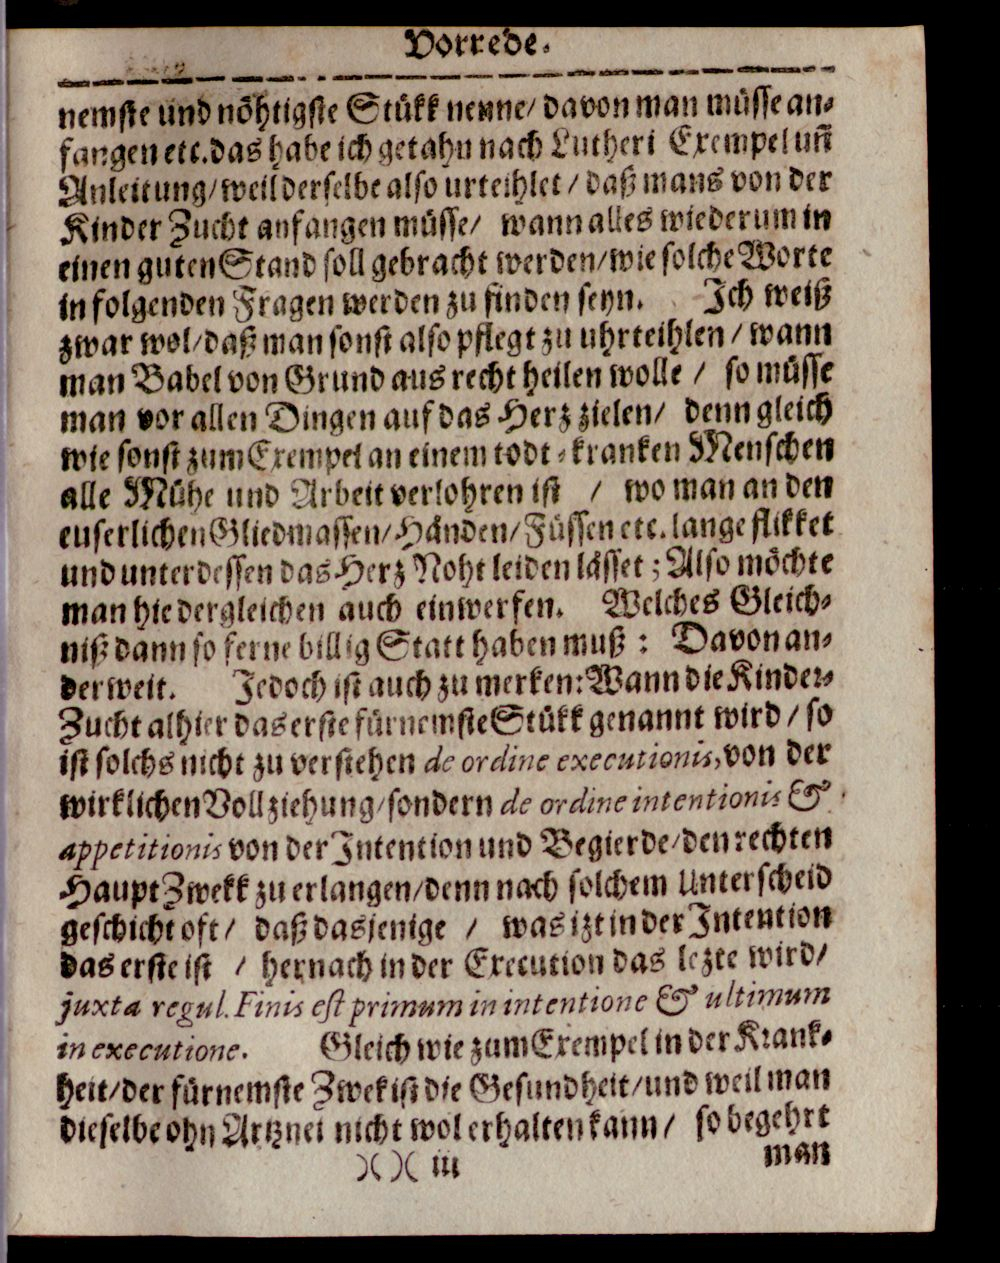 Vorrede.
nemste und nöhtigste Stükk nenne/ davon man müsse an-
fangen etc. das habe ich getahn nach Lutheri Exempel uñ
Anleitung/ weil derselbe also urteihlet / daß mans von der
Kinder Zucht anfangen müsse/ wann alles wiederum in
einen guten Stand soll gebracht werden/ wie solche Worte
in folgenden Fragen werden zu finden seyn. Ich weiß
zwar wol/ daß man sonst also pflegt zu uhrteihlen / wann
man Babel von Grund aus recht heilen wolle / so müsse
man vor allen Dingen auf das Herz zielen/ denn gleich
wie sonst zum Exempel an einem todt-kranken Menschen
alle Mühe und Arbeit verlohren ist / wo man an den
euserlichen Gliedmassen/ Händen/ Füssen etc. lange flikket
und unterdessen das Herz Noht leiden lässet; Also möchte
man hie dergleichen auch einwerfen. Welches Gleich-
niß dann so ferne billig Statt haben muß : Davon an-
derweit. Jedoch ist auch zu merken: Wann die Kinder-
Zucht alhier das erste fürnemste Stükk genannt wird / so
ist solchs nicht zu verstehen de ordine executionis, von der
wirklichen Vollziehung/ sondern de ordine intentionis &
appetitionis von der Intention und Begierde/ den rechten
Haupt Zwekk zu erlangen/ denn nach solchem Unterscheid
geschicht oft / daß dasjenige / was izt in der Intention
das erste ist / hernach in der Execution das lezte wird/
juxta regul. Finis est primum in intentione & ultimum
in executione. Gleich wie zum Exempel in der Krank-
heit/ der fürnemste Zwek ist die Gesundheit/ und weil man
dieselbe ohn Artznei nicht wol erhalten kann / so begehrt
)( )( iii man